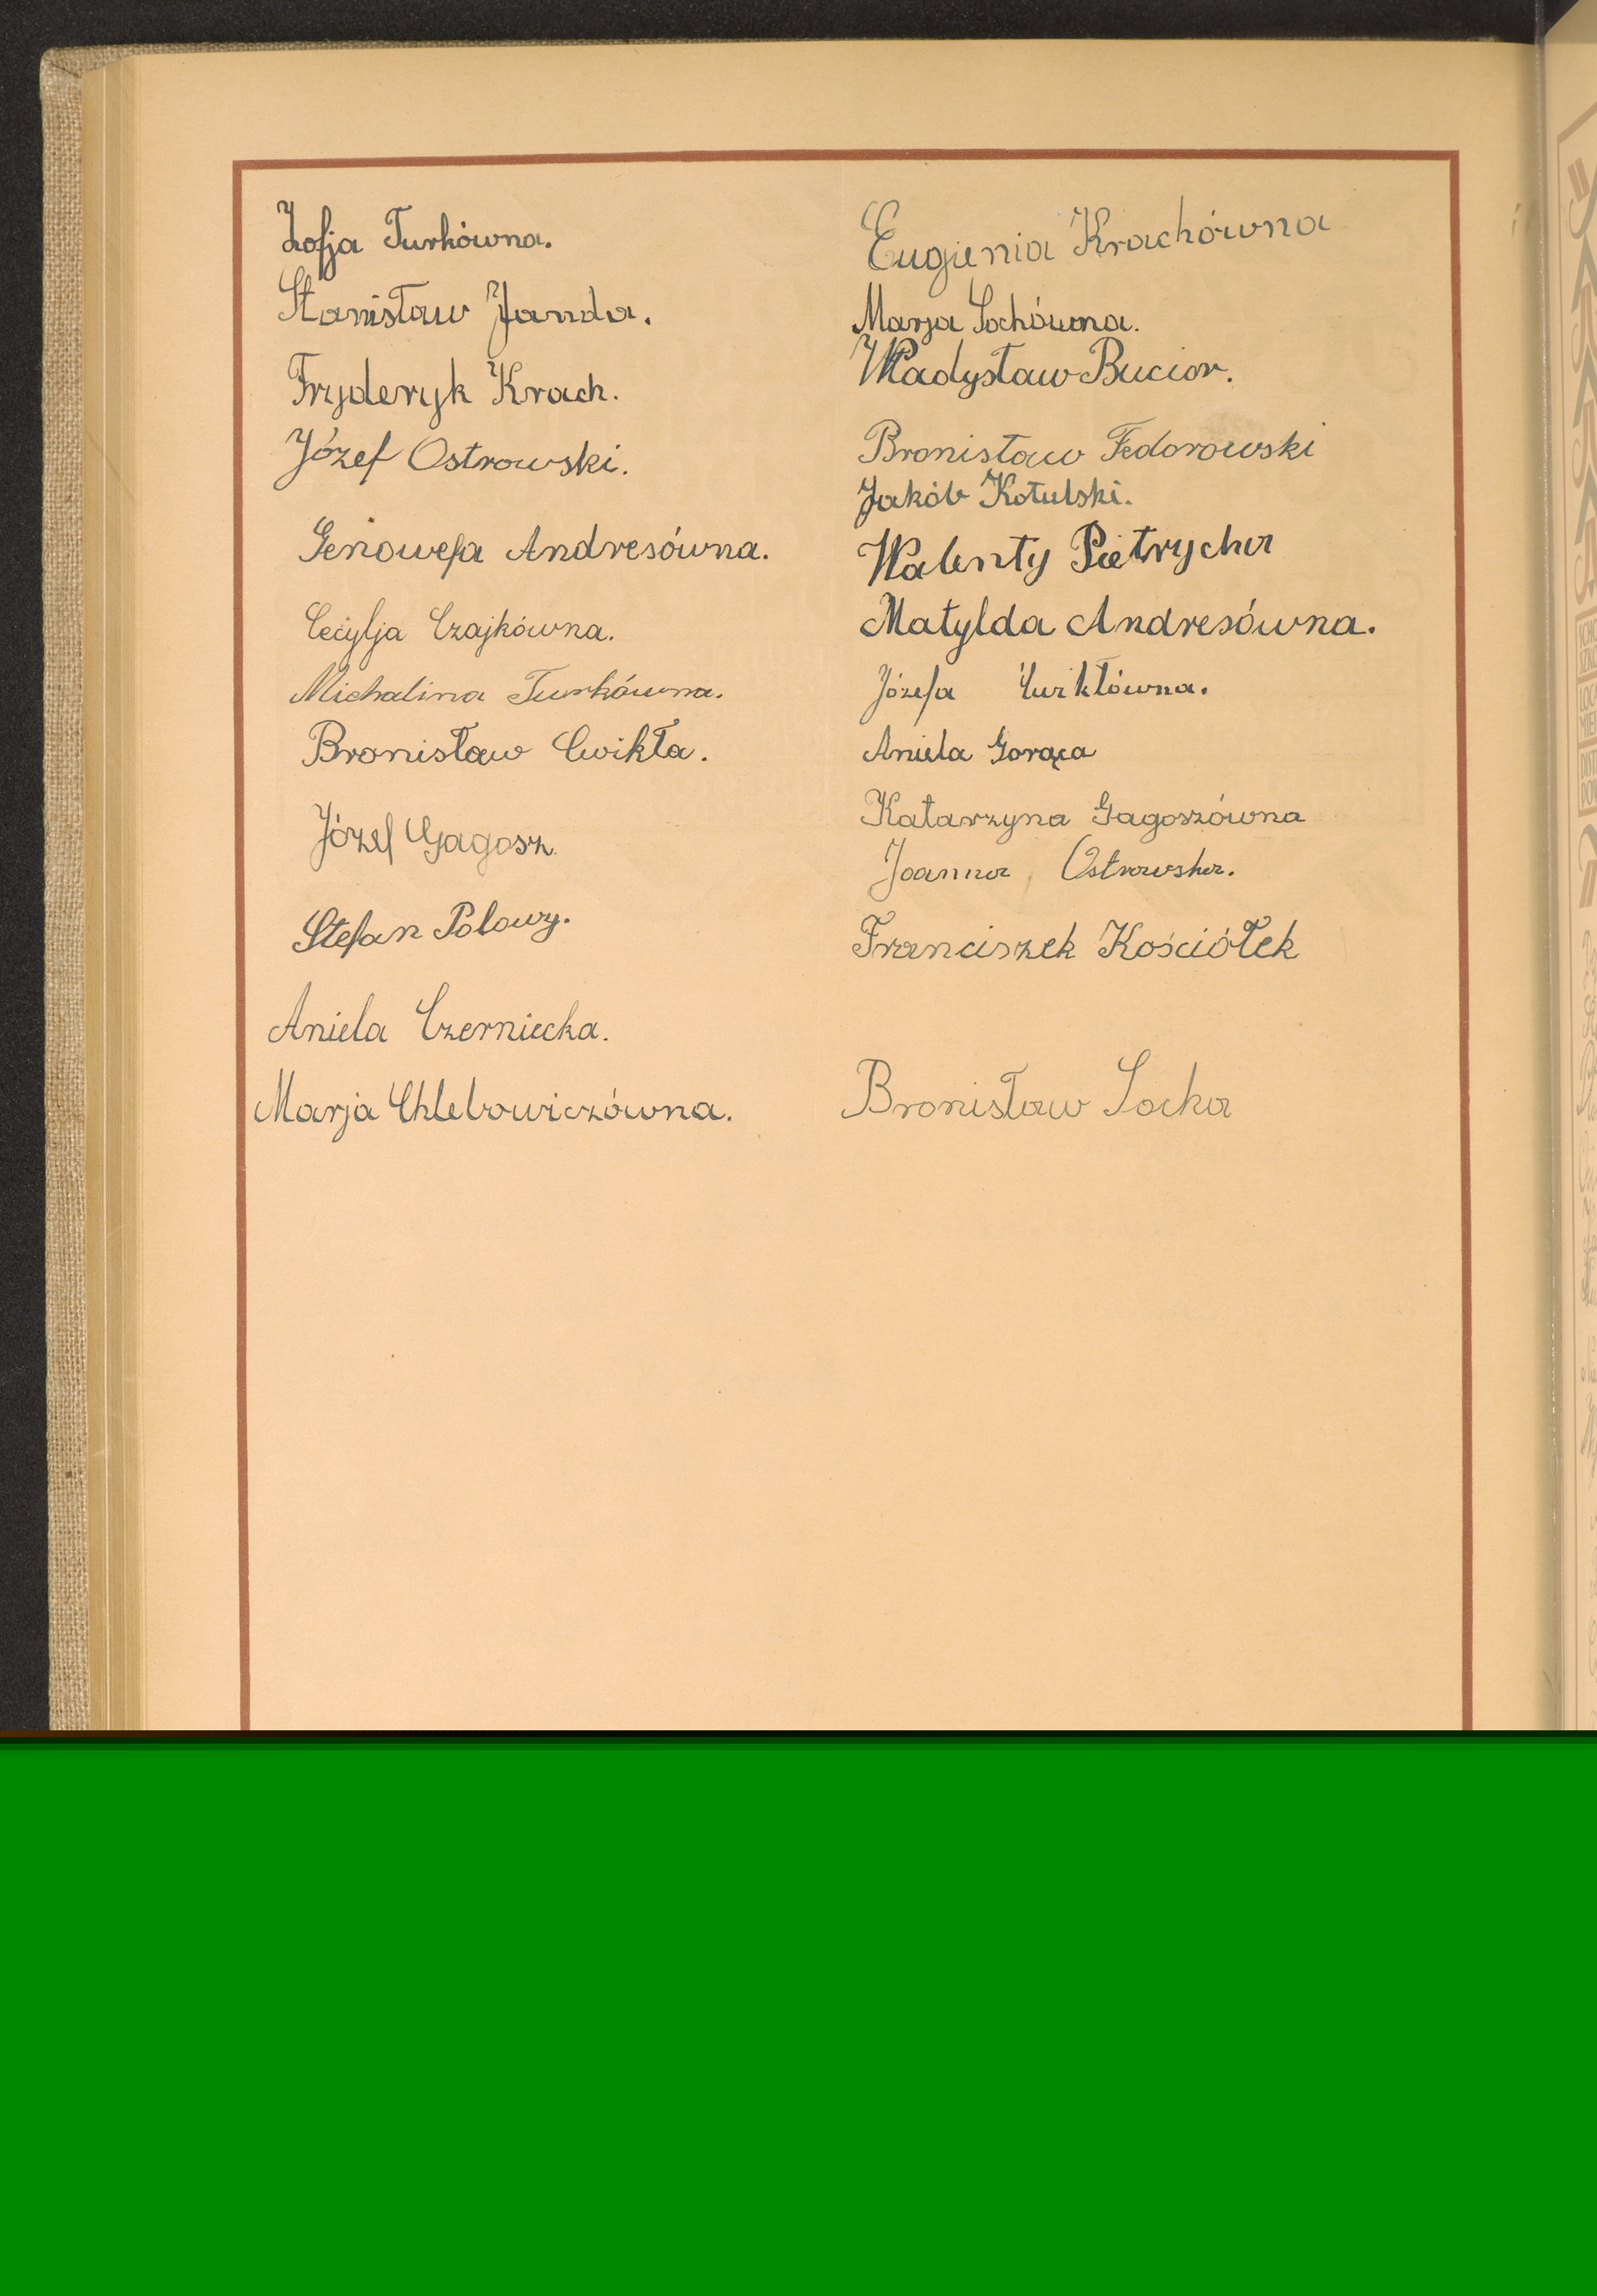 Zofja Turkówna.
Stanisław Janda.
Fryderyk Krach.
Józef Ostrowski.
Genowefa Andresówna.
Cecylja Czajkówna.
Michalina Turkówna.
Bronisław Cwikła.
Józef Gagosz
Stefan Polowy.
Aniela Czerniecka.
Marja Chlebowiczówna.
Eugienia Krachówna
Marja Sochówna.
Władysław Bucior.
Bronisław Fedorowski
Jakób Kotulski.
Walenty Pietrycha
Matylda Andresówna.
Józefa Cwikłówna.
Aniela Gorąca
Katarzyna Gagoszówna
Joanna Ostrowska.
Franciszek Kościółek
Bronisław Socha